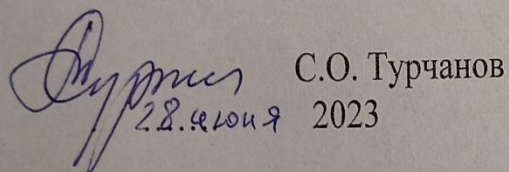 С.О. Турчанов
28 июня 2023